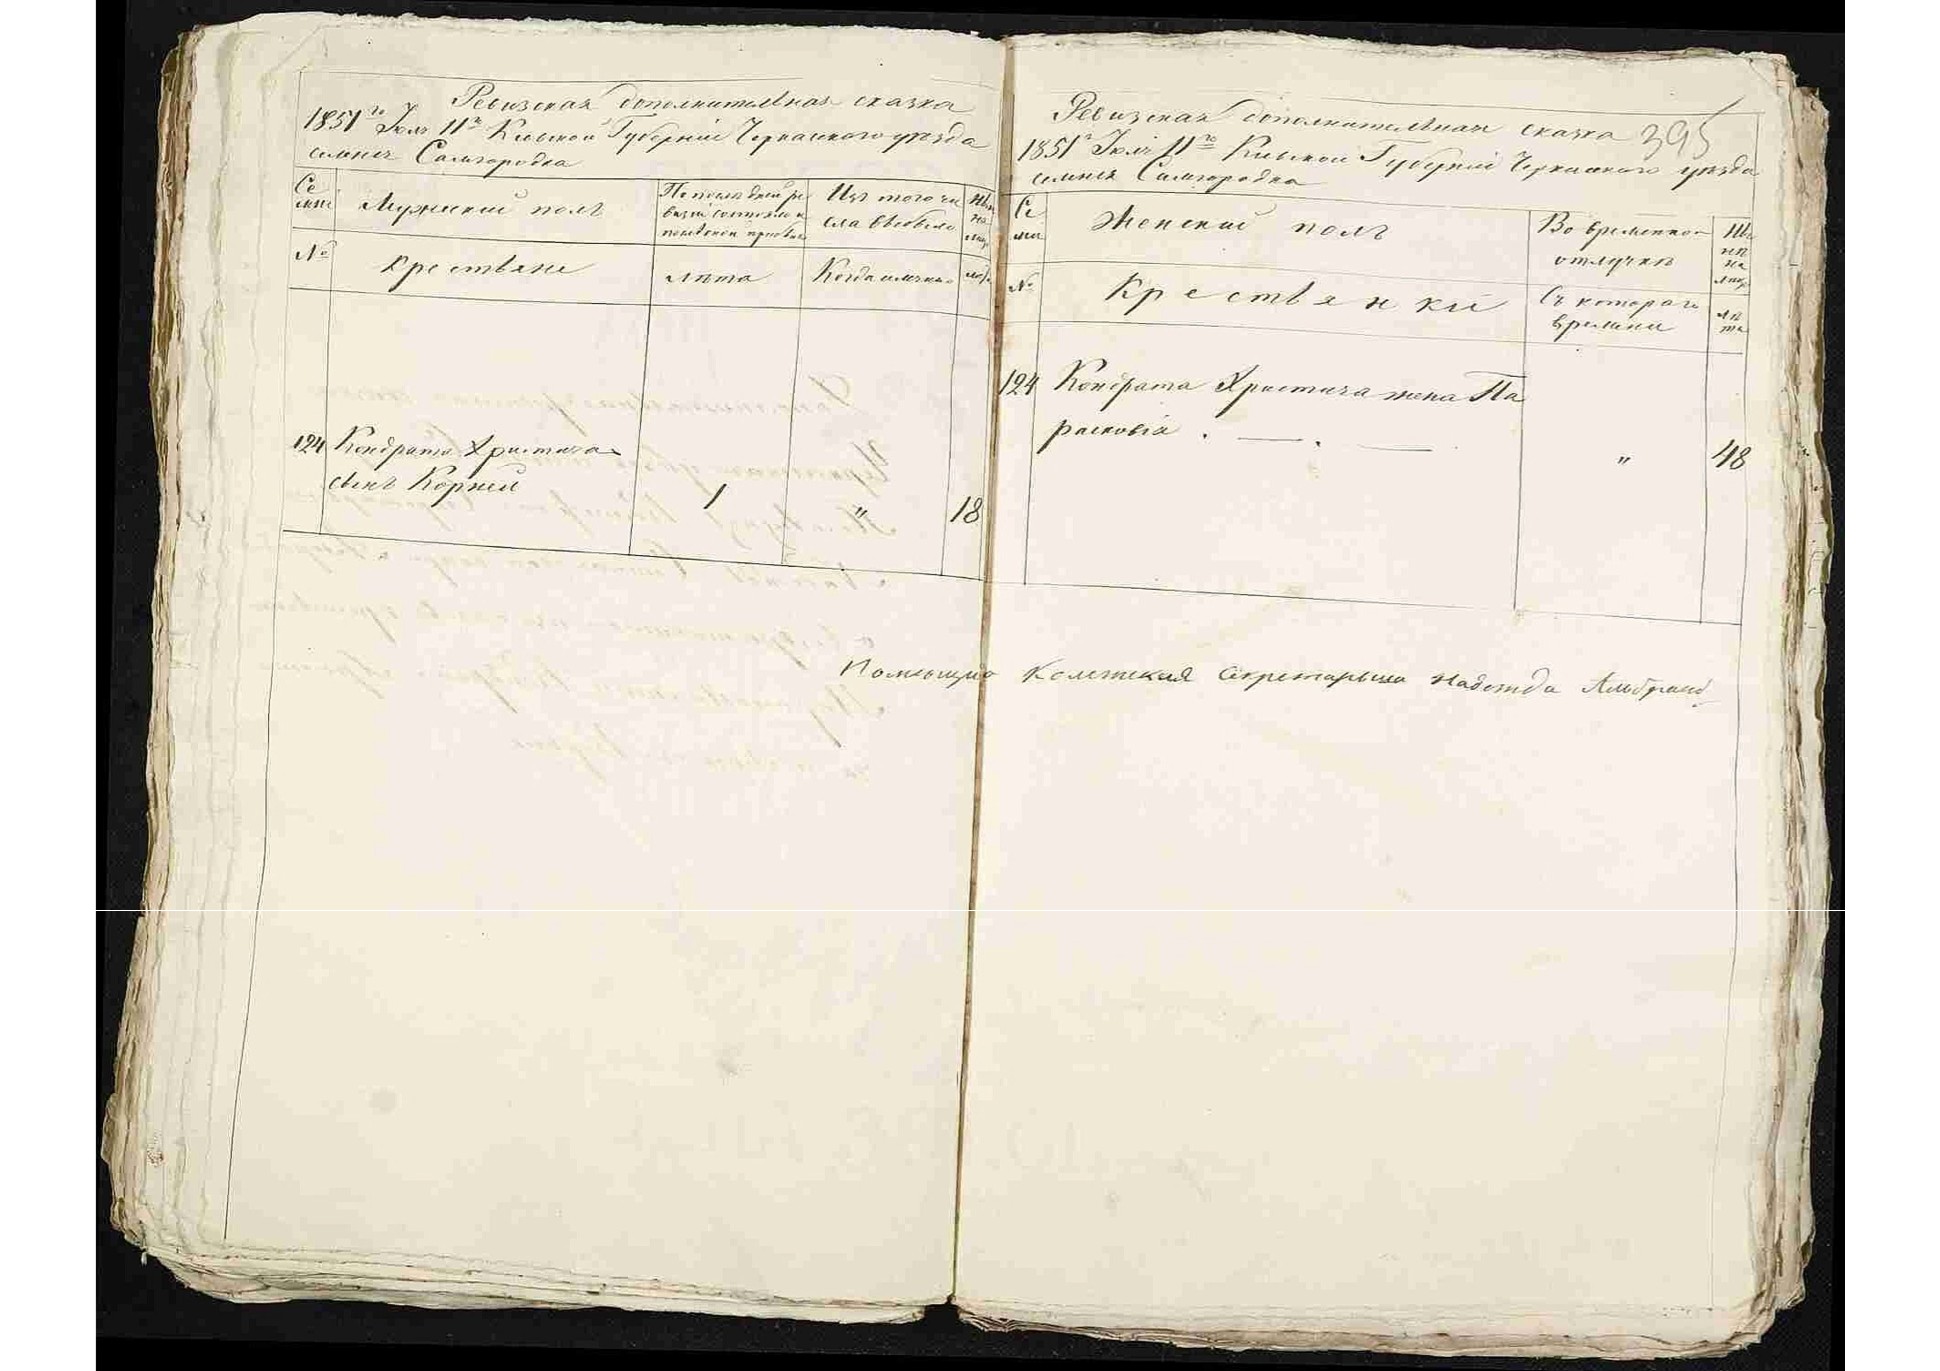 Ревизская дополнительная сказка
1851го Іюля 11го Киевской Губерніи Черкаского уѣзда
имения Самгородка
Се
мьи
Мужеский полъ
По последней ре
визіи состояло и
после оной прибы
Изъ того чи
сла выбыло
Ны
не на
лицо
№
Крестьяне
лѣта
Когда именно
лѣта
124
Кондрата Христича
сынъ Корней
1
"
18
395
Ревизская дополнительная сказка
1851го Іюля 11го Киевской Губерніи Черкаского уѣзда
имения Самгородка
Се
мьи
Женский полъ
Во временной
отлучкѣ
Ны
нѣ
на
лицо
№
Крестьянки
Съ котораго
времени
лѣ
та
124
Кондрата Христича жена Па
расковія
"
48
Помещица Колежская Секретарьша Надежда